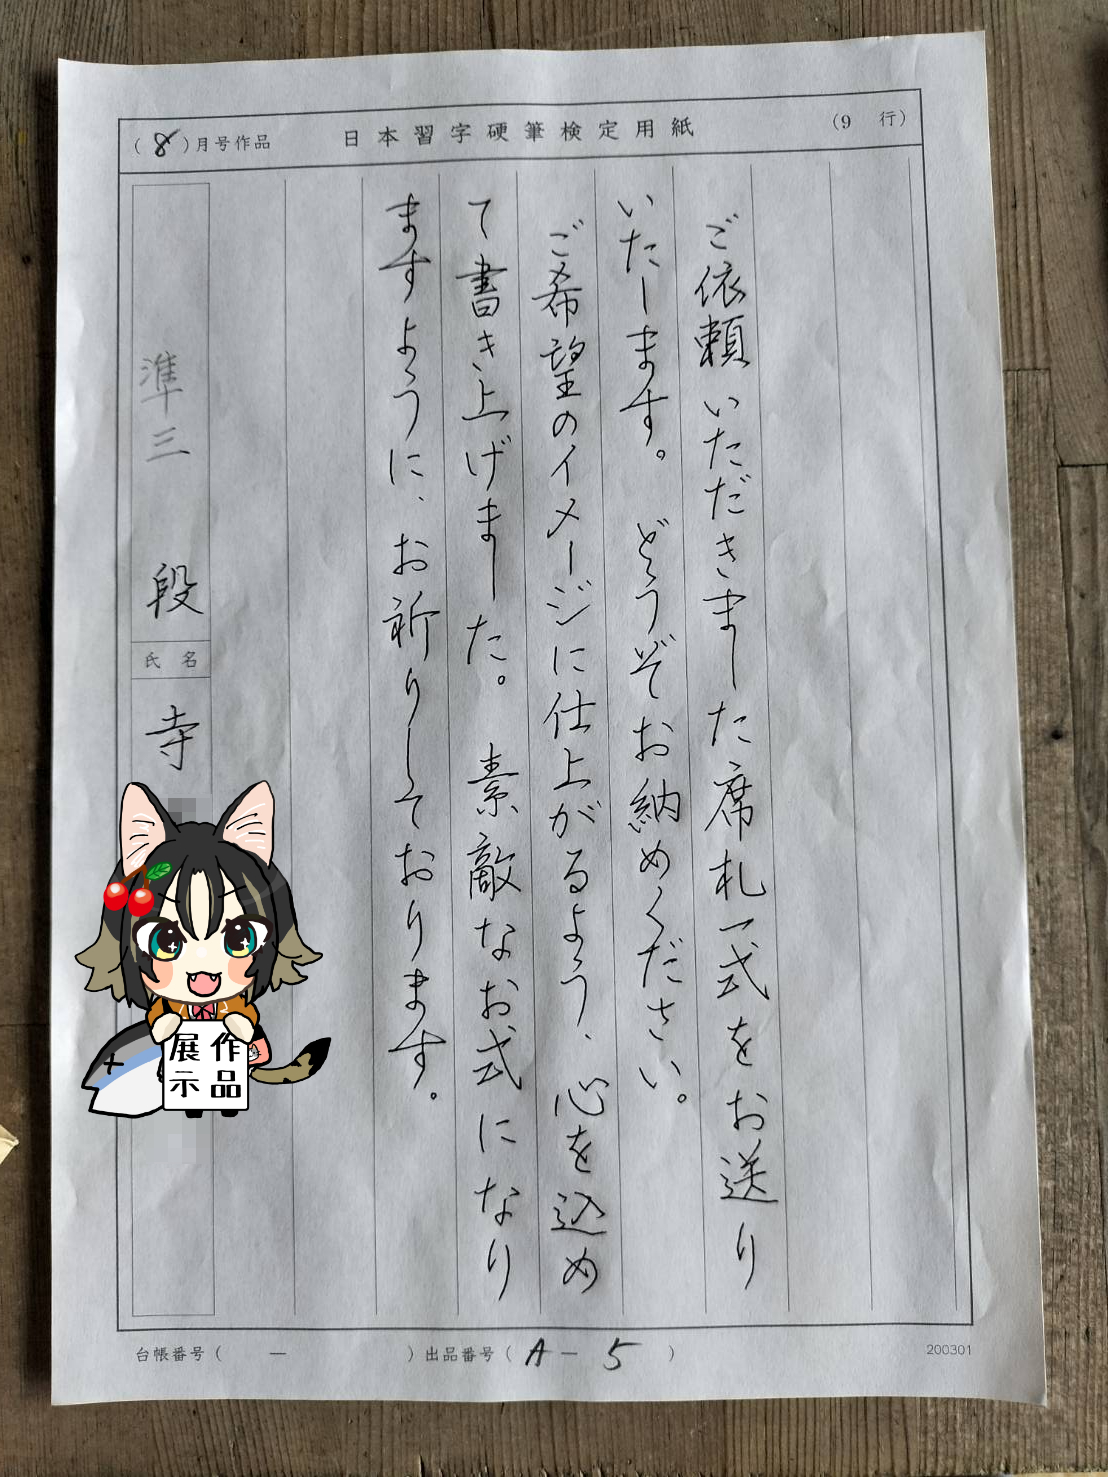 (8)月号作品
日本習字硬筆検定用紙
(9 行)
ご依頼いただきました席札一式をお送り
いたします。どうぞお納めください。
ご希望のイメージに仕上がるよう、心を込め
て書き上げました。素敵なお式になり
ますように、お祈りしております。
準三 段
氏名
寺
作品
展示
台帳番号( ー )出品番号(A-5)
200301